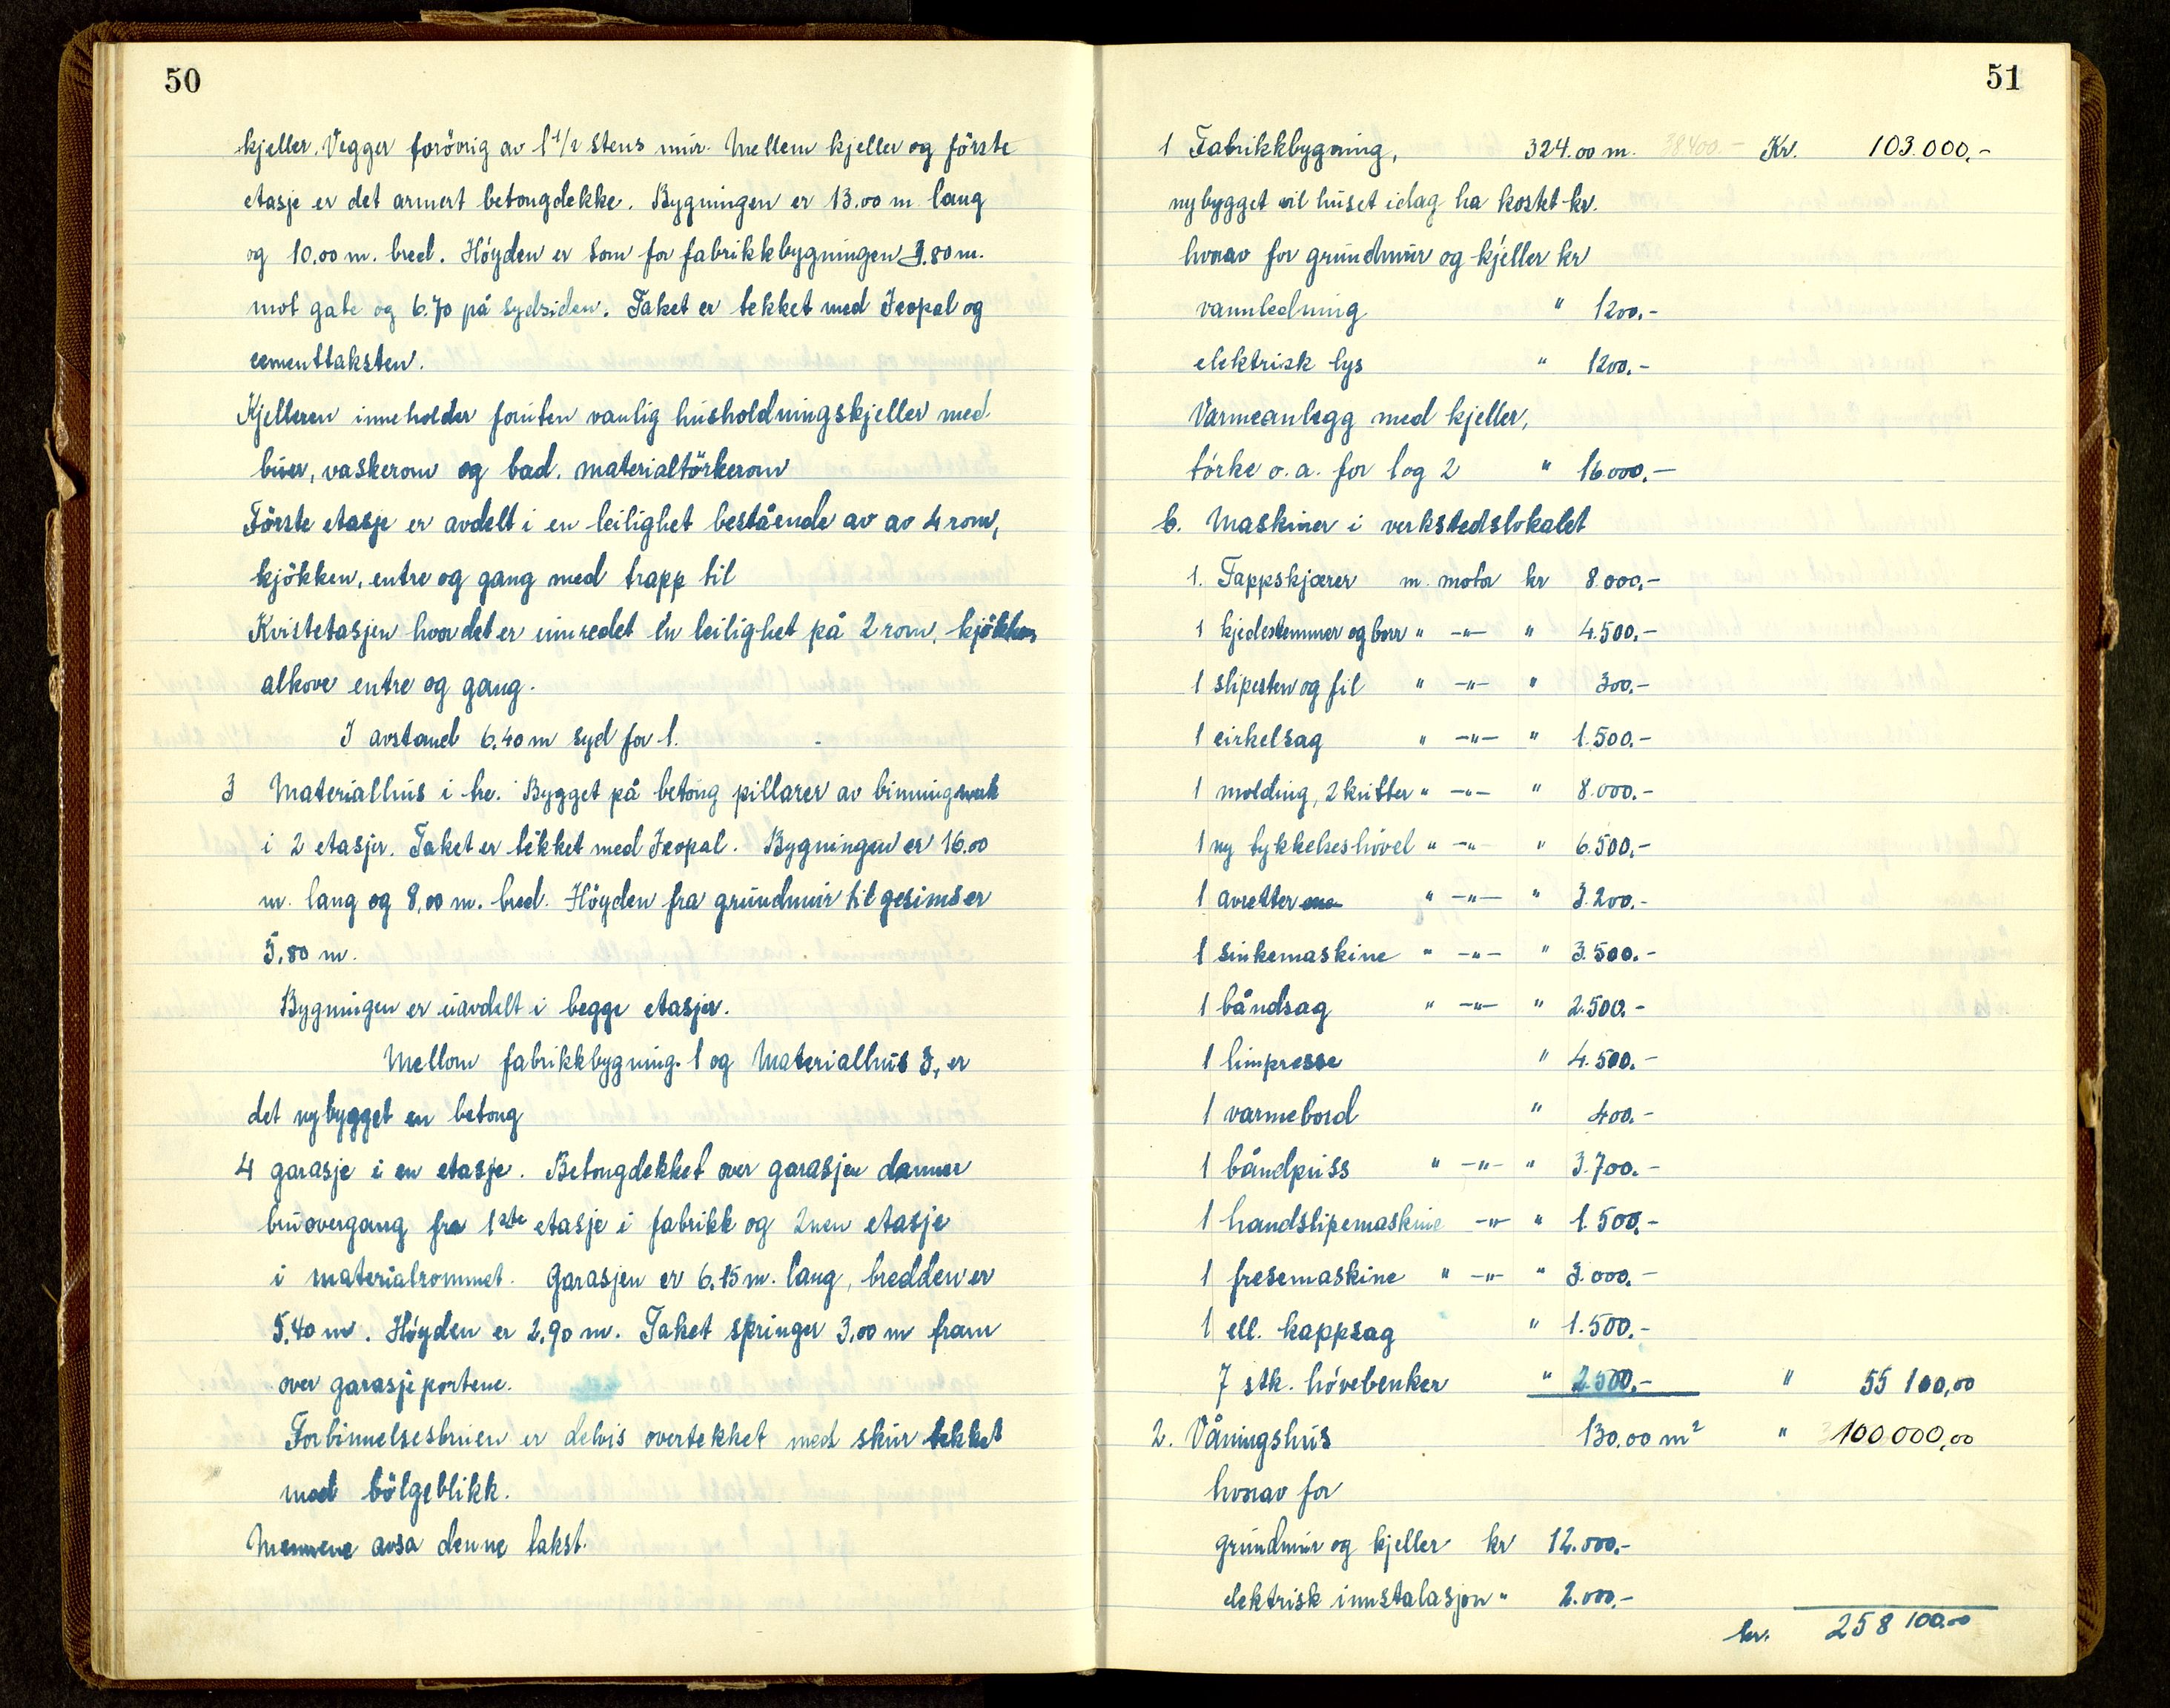 50
kjeller. Vegger forövrig av 1 1/2 stens mur. Mellem kjeller og förste
etasje er det armert betongdekke. Bygningen er 13.00 m lang
og 10.00 m. bred. Höyden er som for fabrikkbygningen 9.80 m.
mot gate og 6.70 på sydsiden. Taket er tekket med Icopal og
cementtaksten.
Kjelleren inneholder foruten vanlig husholdningskjeller med
buer, vaskerom og bad. materialtörkerom
Förste etasje er avdelt i en leilighet bestående av av 4 rom,
kjökken, entre og gang med trapp til
Kvistetasjen hvor det er innredet en leilighet på 2 rom, kjökken
alkove entre og gang.
I avstand 6.40 m syd for 1.
3 Materialhus i tre. Bygget på betong pillarer av binningverk
i 2 etasjer. Taket er tekket med Icopal. Bygningen er 16.00
m. lang og 8,00 m. bred. Höyden fra grundmur til gesims er
5,80 m.
Bygningen er uavdelt i begge etasjer.
Mellom fabrikkbygning. 1 og Materialhus 3, er
det nybygget en betong
4 garasje i en etasje. Betongdekket over garasjen danner
bruovergang fra 1ste etasje i fabrikk og 2nen etasje
i materialrommet. Garasjen er 6.15 m. lang, bredden er
5.40 m. Höyden er 2,90 m. Taket springer 3,00 m fram
over garasjeportene.
Forbinnelsesbruen er delvis overtekket med skur tekket
med bölgeblikk.
Mennene avsa denne takst.
51
1 Fabrikkbygning, 324.00 m. 38.400.- Kr. 103.000,-
nybygget vil huset idag ha kostet kr.
hvorav for grundmur og kjeller kr
vannledning " 1200.-
elektrisk lys " 1200.-
Varmeanlegg med kjeller,
törke o. a. for 1 og 2 " 16.000.-
b. Maskiner i verkstedslokalet
1. Tappskjærer m. motor kr 8.000.-
1 kjedestemmer og borr " -"- " 4.500.-
1 slipesten og fil " -"- " 300.-
1 cirkelsag " -"- " 1.500.-
1 molding, 2 kutter " -"- " 8.000.-
1 ny tykkelseshövel " -"- " 6.500.-
1 avretter " -"- " 3.200.-
1 sinkemaskine " -"- " 3.500.-
1 båndsag " -"- " 2.500.-
1 limpresse " 4.500.-
1 varmebord " 400.-
1 båndpuss " -"- " 3.700.-
1 handslipemaskine -"- " 1.500.-
1 fresemaskine " -"- " 3.000.-
1 ell. kappsag " 1.500.-
7 stk. hövebenker " 2500.- " 55 100,00
2. Våningshus 130,00 m² " 100 000,00
hvorav for
grundmur og kjeller kr 12.000.-
elektrisk innstalasjon " 2.000.-
kr. 258 100.00